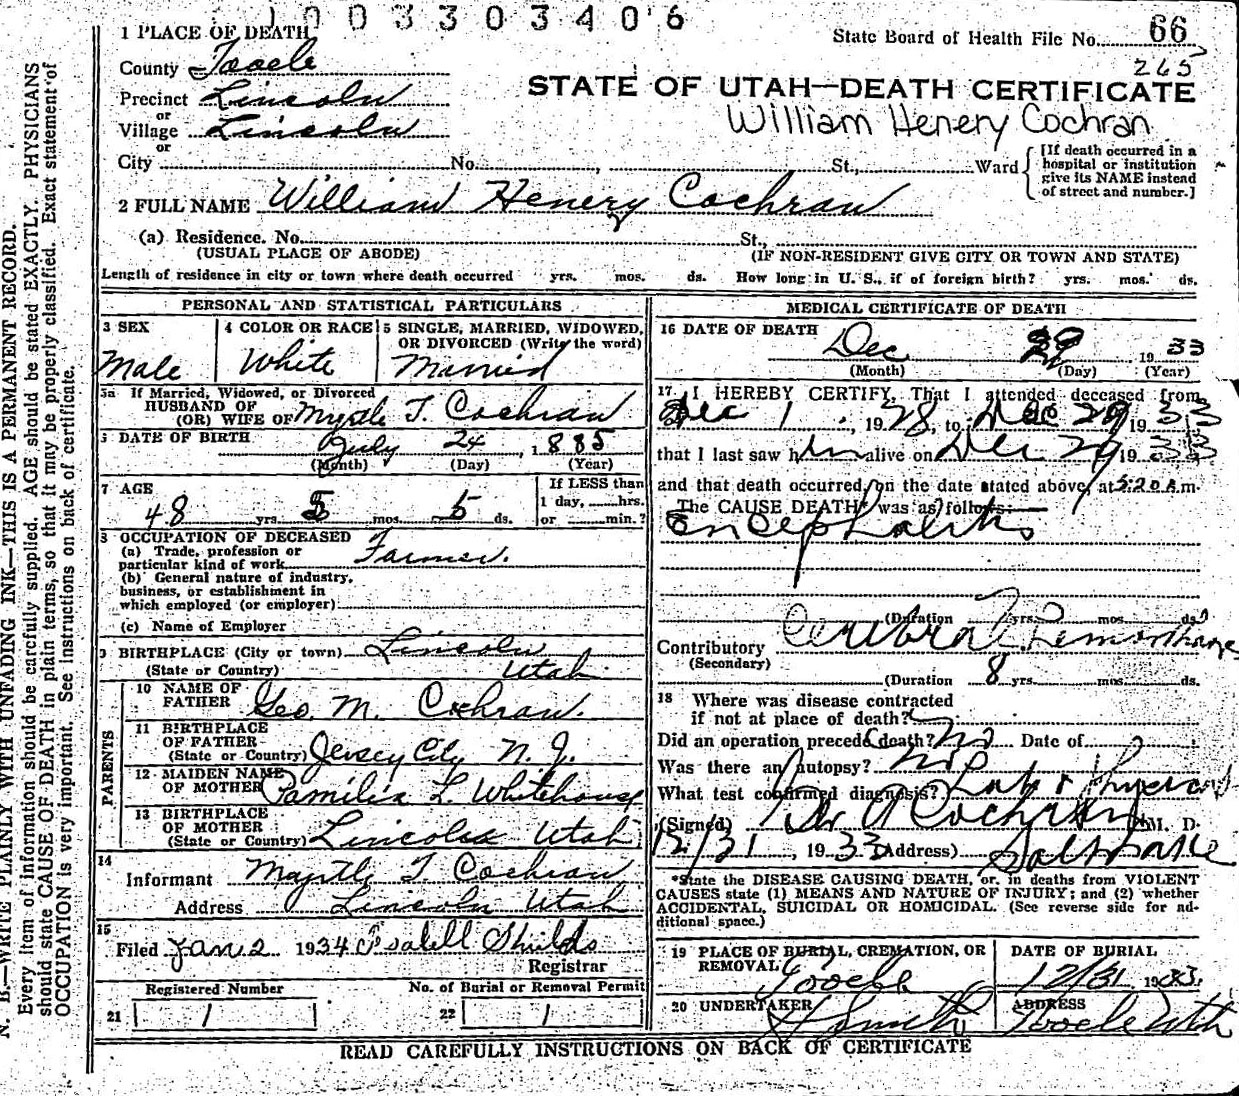 1003303406
1 PLACE OF DEATH
State Board of Health File No. 66
265
County Tooele
STATE OF UTAH—DEATH CERTIFICATE
Precinct Lincoln
or
William Henery Cochran
Village Lincoln
or
City No. St., Ward
[If death occurred in a
hospital or institution
give its NAME instead
of street and number.]
2 FULL NAME William Henery Cochran
(a) Residence. No. St.,
(USUAL PLACE OF ABODE) (IF NON-RESIDENT GIVE CITY OR TOWN AND STATE)
Length of residence in city or town where death occurred yrs. mos. ds. How long in U. S., if of foreign birth? yrs. mos. ds.
PERSONAL AND STATISTICAL PARTICULARS
3 SEX
Male
4 COLOR OR RACE
White
5 SINGLE, MARRIED, WIDOWED,
OR DIVORCED (Write the word)
Married
5a If Married, Widowed, or Divorced
HUSBAND OF
(OR) WIFE OF Myrtle T. Cochran
DATE OF BIRTH
July 24, 1885
(Month) (Day) (Year)
7 AGE
48 yrs. 5 mos. 5 ds.
If LESS than
1 day, hrs.
or min.?
8 OCCUPATION OF DECEASED
(a) Trade, profession or
particular kind of work Farmer.
(b) General nature of industry,
business, or establishment in
which employed (or employer)
(c) Name of Employer
9 BIRTHPLACE (City or town) Lincoln
(State or Country) Utah
PARENTS
10 NAME OF
FATHER Geo. M. Cochran.
11 BIRTHPLACE
OF FATHER
(State or Country) Jersey City N. J.
12 MAIDEN NAME
OF MOTHER Pamilia L. Whitehouse
13 BIRTHPLACE
OF MOTHER
(State or Country) Lincoln Utah
14
Informant Myrtle T. Cochran
Address Lincoln Utah
15
Filed Jan 2 1934 Isabell Shields
Registrar
Registered Number No. of Burial or Removal Permit
21 1 22 1
MEDICAL CERTIFICATE OF DEATH
16 DATE OF DEATH
Dec 29 1933
(Month) (Day) (Year)
17 I HEREBY CERTIFY, That I attended deceased from
Dec 1, 1928, to Dec 29 1933
that I last saw him alive on Dec 29 1933
and that death occurred, on the date stated above, at 5:20 A.m.
The CAUSE DEATH* was as follows:
Encephalitis
(Duration yrs. mos. ds.
Contributory Cerebral Hemorrhage
(Secondary)
(Duration 8 yrs. mos. ds.
18 Where was disease contracted
if not at place of death?
Did an operation precede death? No Date of
Was there an autopsy? No
What test confirmed diagnosis? Lab & Physical
(Signed) Cochran M. D.
12/31, 1933 (Address) Salt Lake
*State the DISEASE CAUSING DEATH, or, in deaths from VIOLENT
CAUSES state (1) MEANS AND NATURE OF INJURY; and (2) whether
ACCIDENTAL, SUICIDAL OR HOMICIDAL. (See reverse side for ad-
ditional space.)
19 PLACE OF BURIAL, CREMATION, OR
REMOVAL
Tooele
DATE OF BURIAL
12/31 1933.
20 UNDERTAKER
Smith
ADDRESS
Tooele Utah
READ CAREFULLY INSTRUCTIONS ON BACK OF CERTIFICATE
N. B.—WRITE PLAINLY WITH UNFADING INK—THIS IS A PERMANENT RECORD.
Every item of information should be carefully supplied. AGE should be stated EXACTLY. PHYSICIANS
should state CAUSE OF DEATH in plain terms, so that it may be properly classified. Exact statement of
OCCUPATION is very important. See instructions on back of certificate.